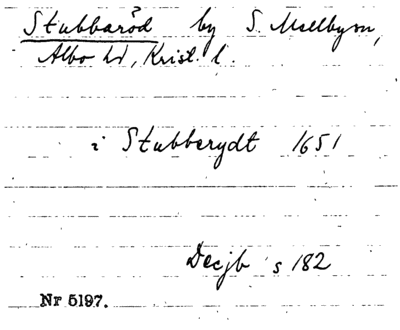 Stubbaröd by S. Mellbysn,
Albo hd, Krist. l.
i Stubberydt 1651
Decjb s 182
Nr 5197.